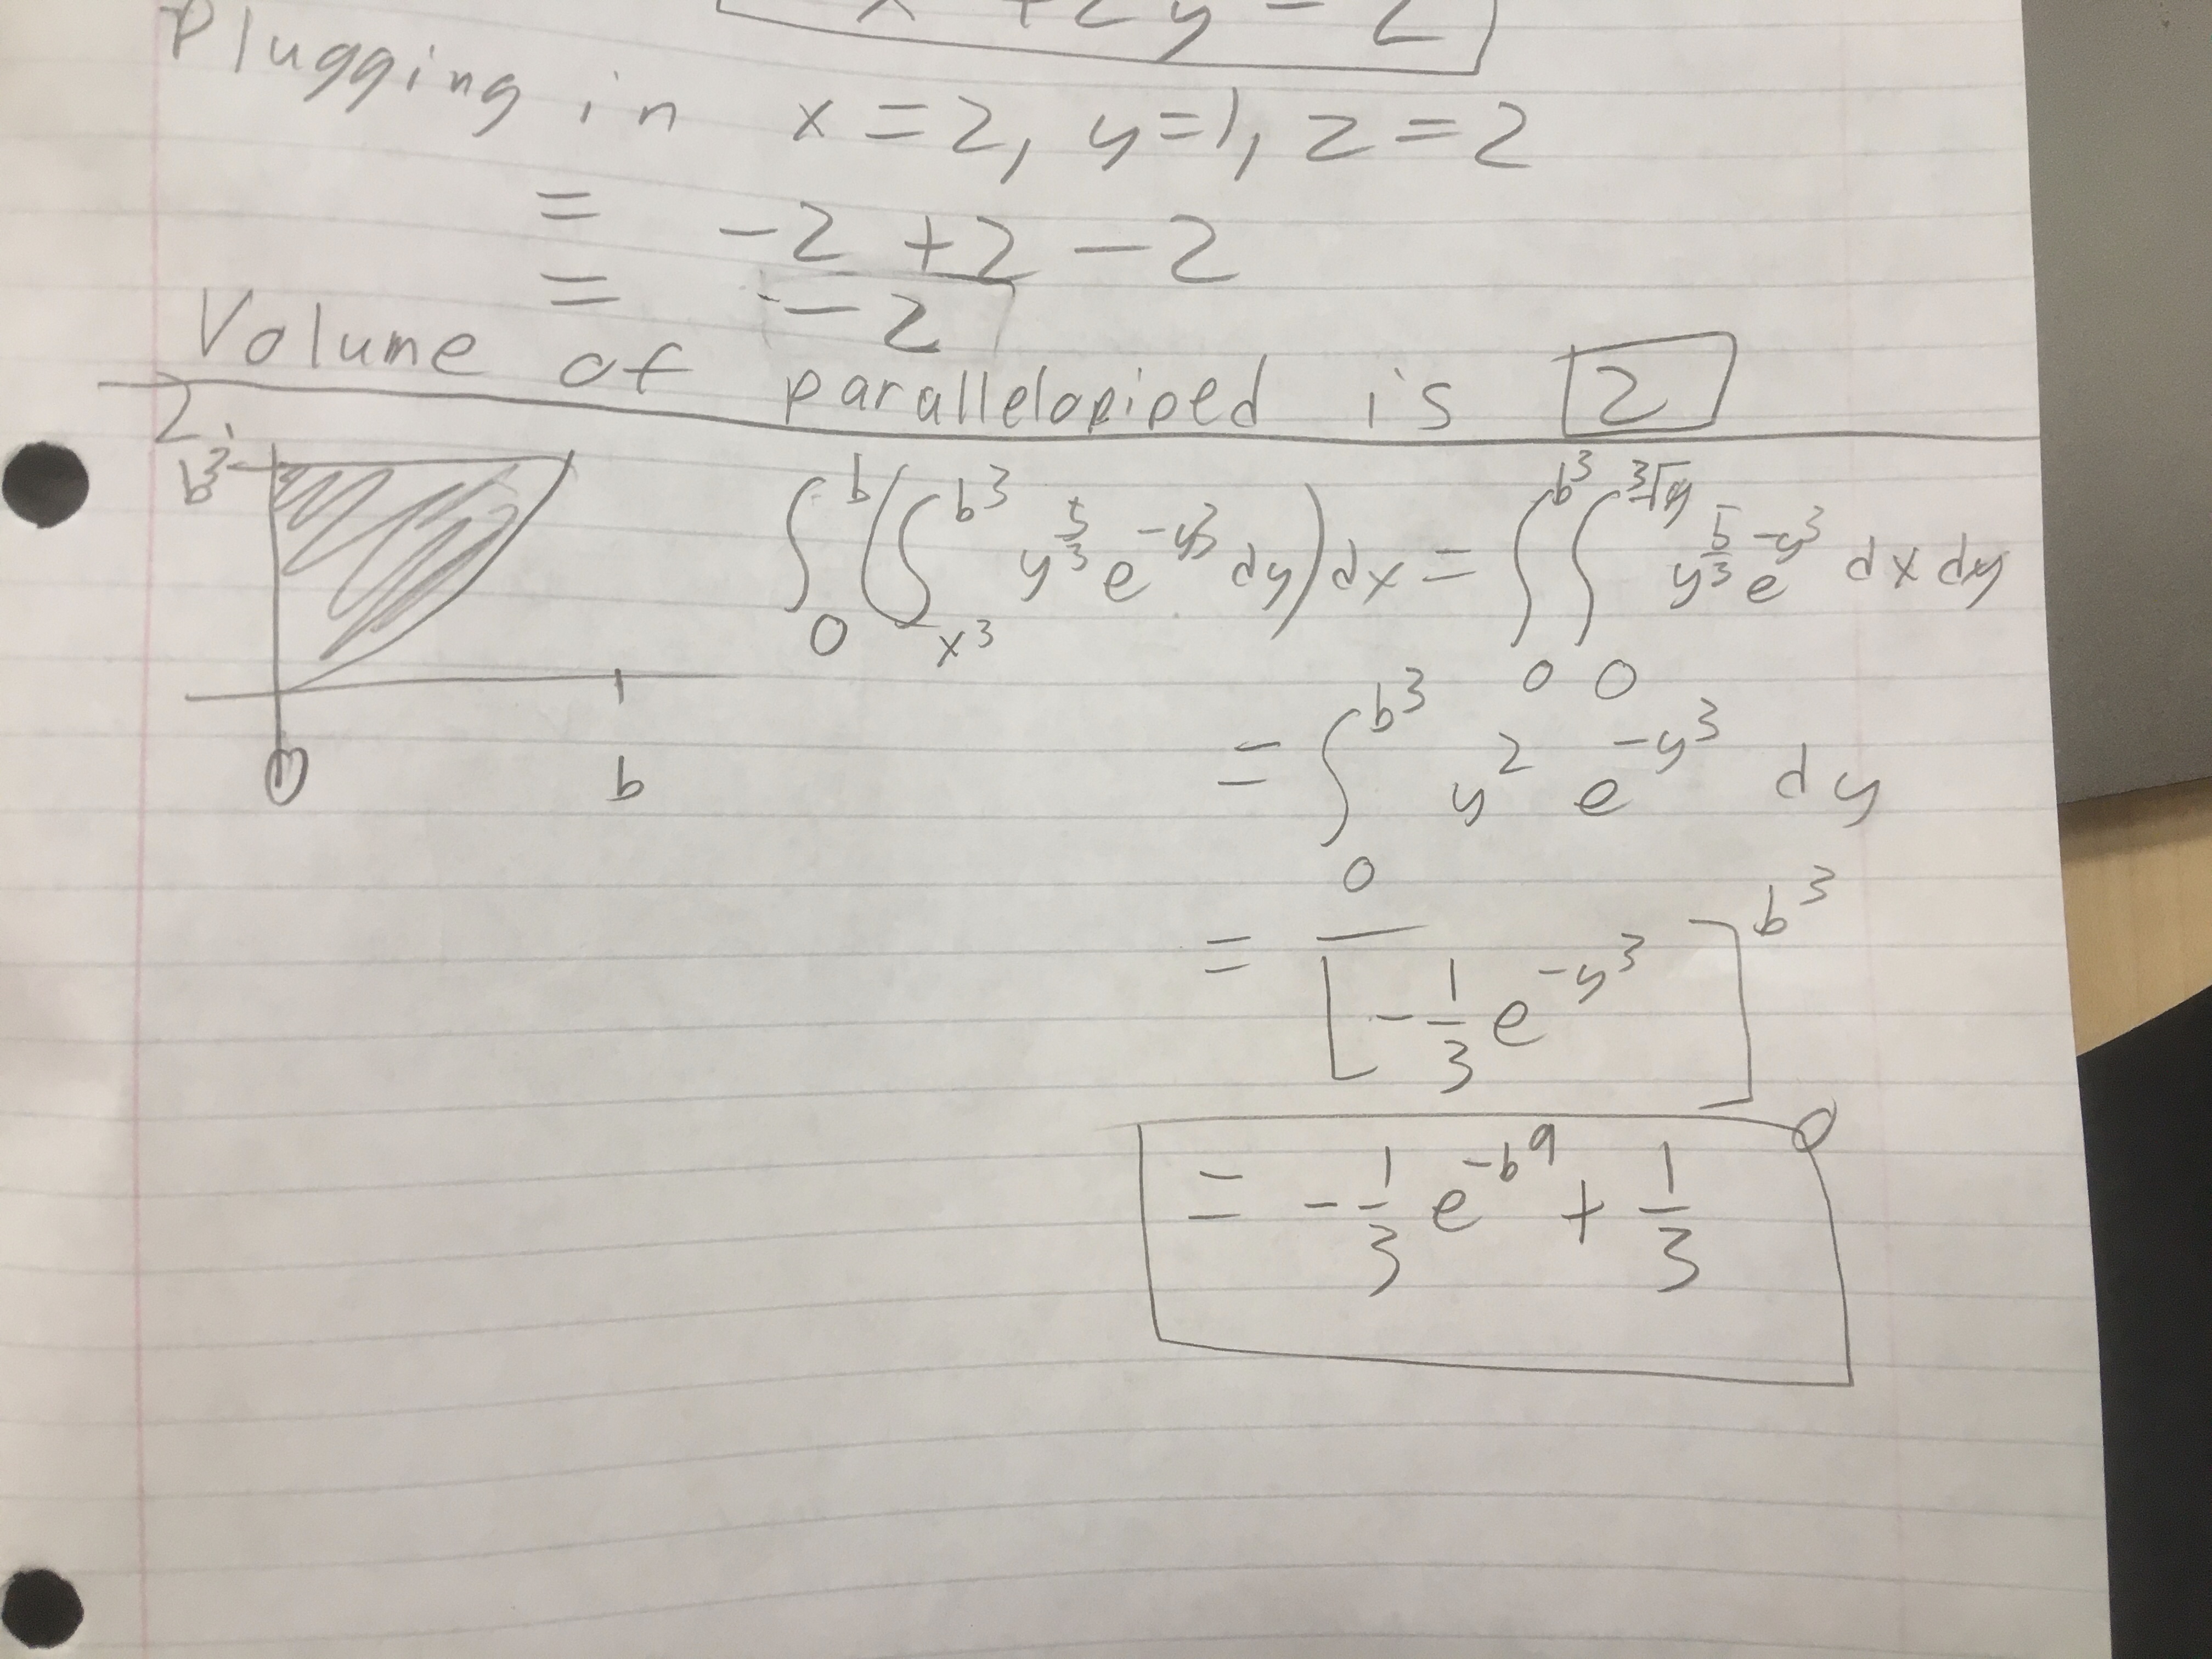 x + 2y - 2
Plugging in x=2, y=1, z=2
= -2 + 2 - 2
= -2
Volume of parallelopiped is 2
2.
b³
∫₀ᵇ(∫ₓ³ᵇ³ y^(5/3) e^(-y³) dy)dx = ∫₀ᵇ³ ∫₀^∛y y^(5/3) e^(-y³) dx dy
0 b
= ∫₀ᵇ³ y² e^(-y³) dy
= [-1/3 e^(-y³)]₀ᵇ³
= -1/3 e^(-b⁹) + 1/3